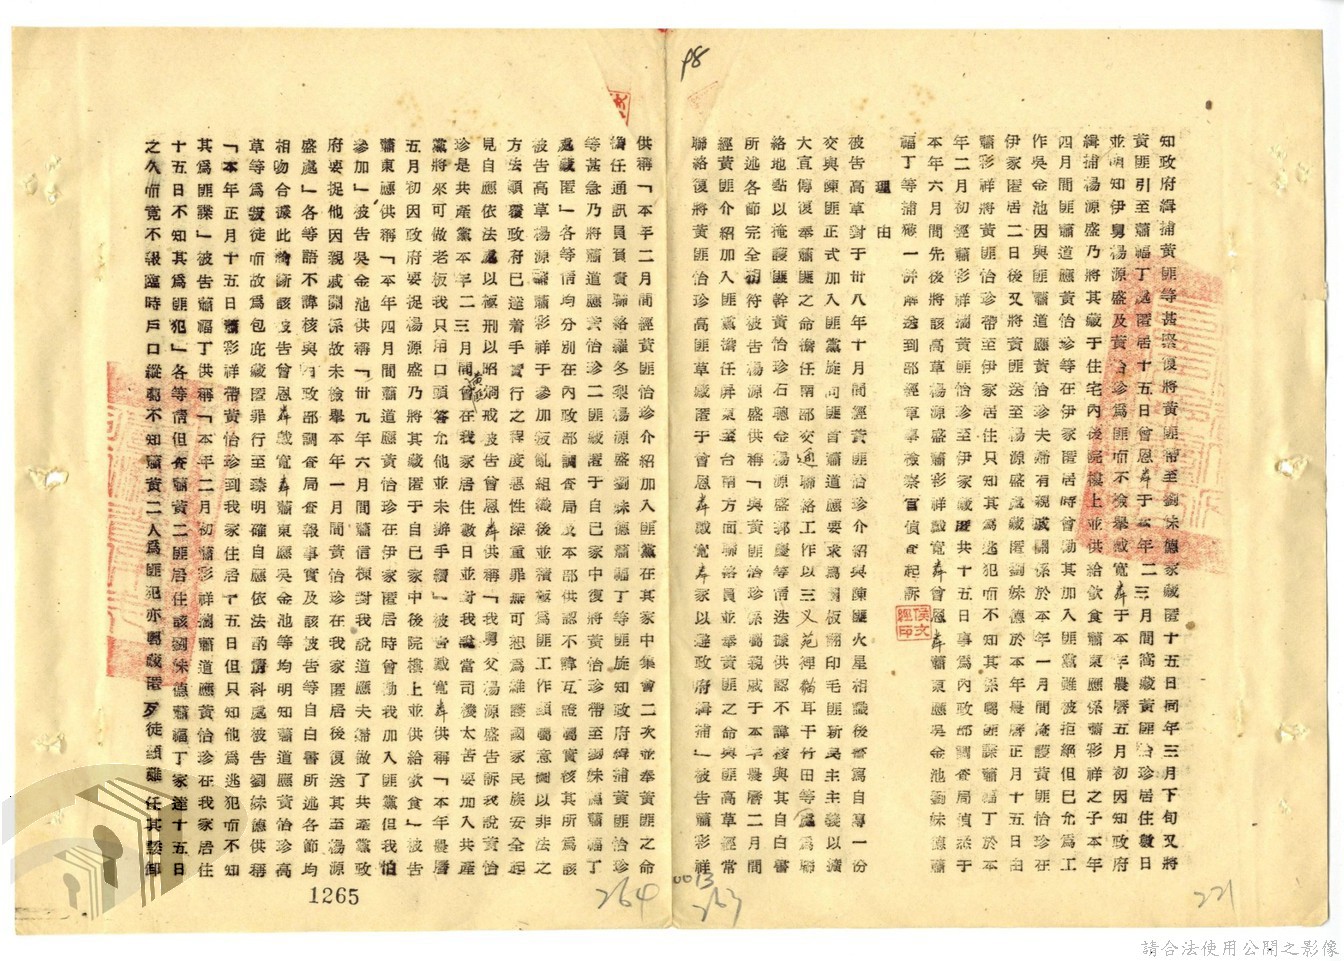 98
知政府緝捕黃匪等甚緊復將黃匪帶至劉妹德家藏匿十五日同年三月下旬又將
黃匪引至蕭福丁處匿居十五日曾恩奔于本年二三月間窩藏黃匪怡珍居住數日
並明知伊舅楊源盛及黃怡珍為匪而不檢舉戴寬奔于本年農曆五月初因知政府
緝捕楊源盛乃將其藏于住宅內後院樓上並供給飲食蕭東應係蕭彩祥之子本年
四月間匪蕭道應黃怡珍等在伊家匿居時曾勸其加入匪黨雖被拒絕但已允為工
作吳金池因與匪蕭道應黃怡珍夫婦有親戚關係於本年一月間掩護黃匪怡珍在
伊家匿居二日後又將黃匪送至楊源盛處藏匿劉妹德於本年農曆正月十五日由
蕭彩祥將黃匪怡珍帶至伊家居住只知其為逃犯而不知其係屬匪諜蕭福丁於本
年二月初經蕭彩祥攜黃匪怡珍至伊家藏匿共十五日事為內政部調查局偵悉于
本年六月間先後將該高草楊源盛蕭彩祥戴寬奔曾恩奔蕭東應吳金池劉妹德蕭
福丁等捕獲一併解送到部經軍事檢察官偵查起訴
理由
被告高草對于卅八年十月間經黃匪怡珍介紹與陳匪火星相識後曾寫自專一份
交與陳匪正式加入匪黨旋向匪首蕭道應要求為翻板翻印毛匪新民主主義以濱
大宣傳復奉蕭匪之命擔任南部交通聯絡工作以三义苑裡貓耳干竹田等處為聯
絡地點以掩護匪幹黃怡珍石聰金楊源盛郭慶等情迭據供認不諱核與其自白書
所述各節完全相符被告楊源盛供稱「與黃匪怡珍係屬親戚于本年農曆二月間
經黃匪介紹加入匪黨擔任屏東至台南方面聯絡員並奉黃匪之命與匪高草經常
聯絡復將黃匪怡珍高匪草藏匿于曾恩奔戴寬奔家以避政府緝捕」被告蕭彩祥
供稱「本年二月間經黃匪怡珍介紹加入匪黨在其家中集會二次並奉黃匪之命
擔任通訊員負責聯絡羅冬梨楊源盛劉妹德蕭福丁等匪旋知政府緝捕黃匪怡珍
等甚急乃將蕭道應黃怡珍二匪藏匿于自己家中復將黃怡珍帶至劉妹德蕭福丁
處藏匿」各等情均分別在內政部調查局及本部供認不諱互證屬實核其所為該
被告高草楊源盛蕭彩祥于參加叛亂組織後並積極為匪工作顯屬意圖以非法之
方法顛覆政府已達着手實行之程度惡性深重罪無可恕為維護國家民族安全起
見自應依法處以極刑以昭炯戒被告曾恩奔供稱「我舅父楊源盛告訴我說黃怡
珍是共產黨本年二三月間黃匪曾在我家居住數日並對我說當司機太苦要加入共產
黨將來可做老板我只用口頭答允他並未辦手續」被告戴寬奔供稱「本年農曆
五月初因政府要捉楊源盛乃將其藏匿于自己家中後院樓上並供給飲食」被告
蕭東應供稱「本年四月間蕭道應黃怡珍在伊家匿居時曾勸我加入匪黨但我怕
參加」被告吳金池供稱「卅九年六月間蕭信棟對我說道應夫婦做了共產黨政
府要捉他因親戚關係故未檢舉本年一月間黃怡珍在我家匿居後復送其至楊源
盛處」各等語不諱核與內政部調查局查報事實及該被告等自白書所述各節均
相吻合據此論斷該被告曾恩奔戴寬奔蕭東應吳金池等均明知蕭道應黃怡珍高
草等為叛徒而故為包庇藏匿罪行至臻明確自應依法酌情科處被告劉妹德供稱
「本年正月十五日蕭彩祥帶黃怡珍到我家住居十五日但只知他為逃犯而不知
其為匪諜」被告蕭福丁供稱「本年二月初蕭彩祥攜蕭道應黃怡珍在我家居住
十五日不知其為匪犯」各等情但查蕭黃二匪居住該劉妹德蕭福丁家達十五日
之久而竟不報臨時戶口縱都不知蕭黃二人為匪犯亦屬藏匿歹徒顯難任其諉卸
1265
264
0013
263
221
請合法使用公開之影像